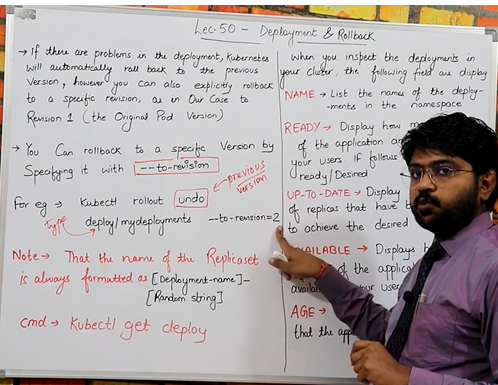 Lec-50 - Deployment & Rollback
→ If there are problems in the deployment, Kubernetes
will automatically roll back to the previous
Version, however you can also explicitly rollback
to a specific revision, as in Our Case to
Revision 1 (the Original Pod Version)
→ You Can rollback to a specific Version by
Specifying it with --to-revision
previous
version
For eg → Kubectl rollout undo
type
deploy/mydeployments --to-revision=2
Note → That the name of the Replicaset
is always formatted as [Deployment-name]-
[Random string]
cmd → Kubectl get deploy
when you inspect the deployments in
your cluster, the following field are display
NAME → List the names of the deploy-
-ments in the namespace
READY → Display how
of the application
your users. If follows
ready/Desired
UP-TO-DATE → Display
of replicas that have
to achieve the desired
AVAILABLE → Displays
of the applica
your user
AGE →
that the app